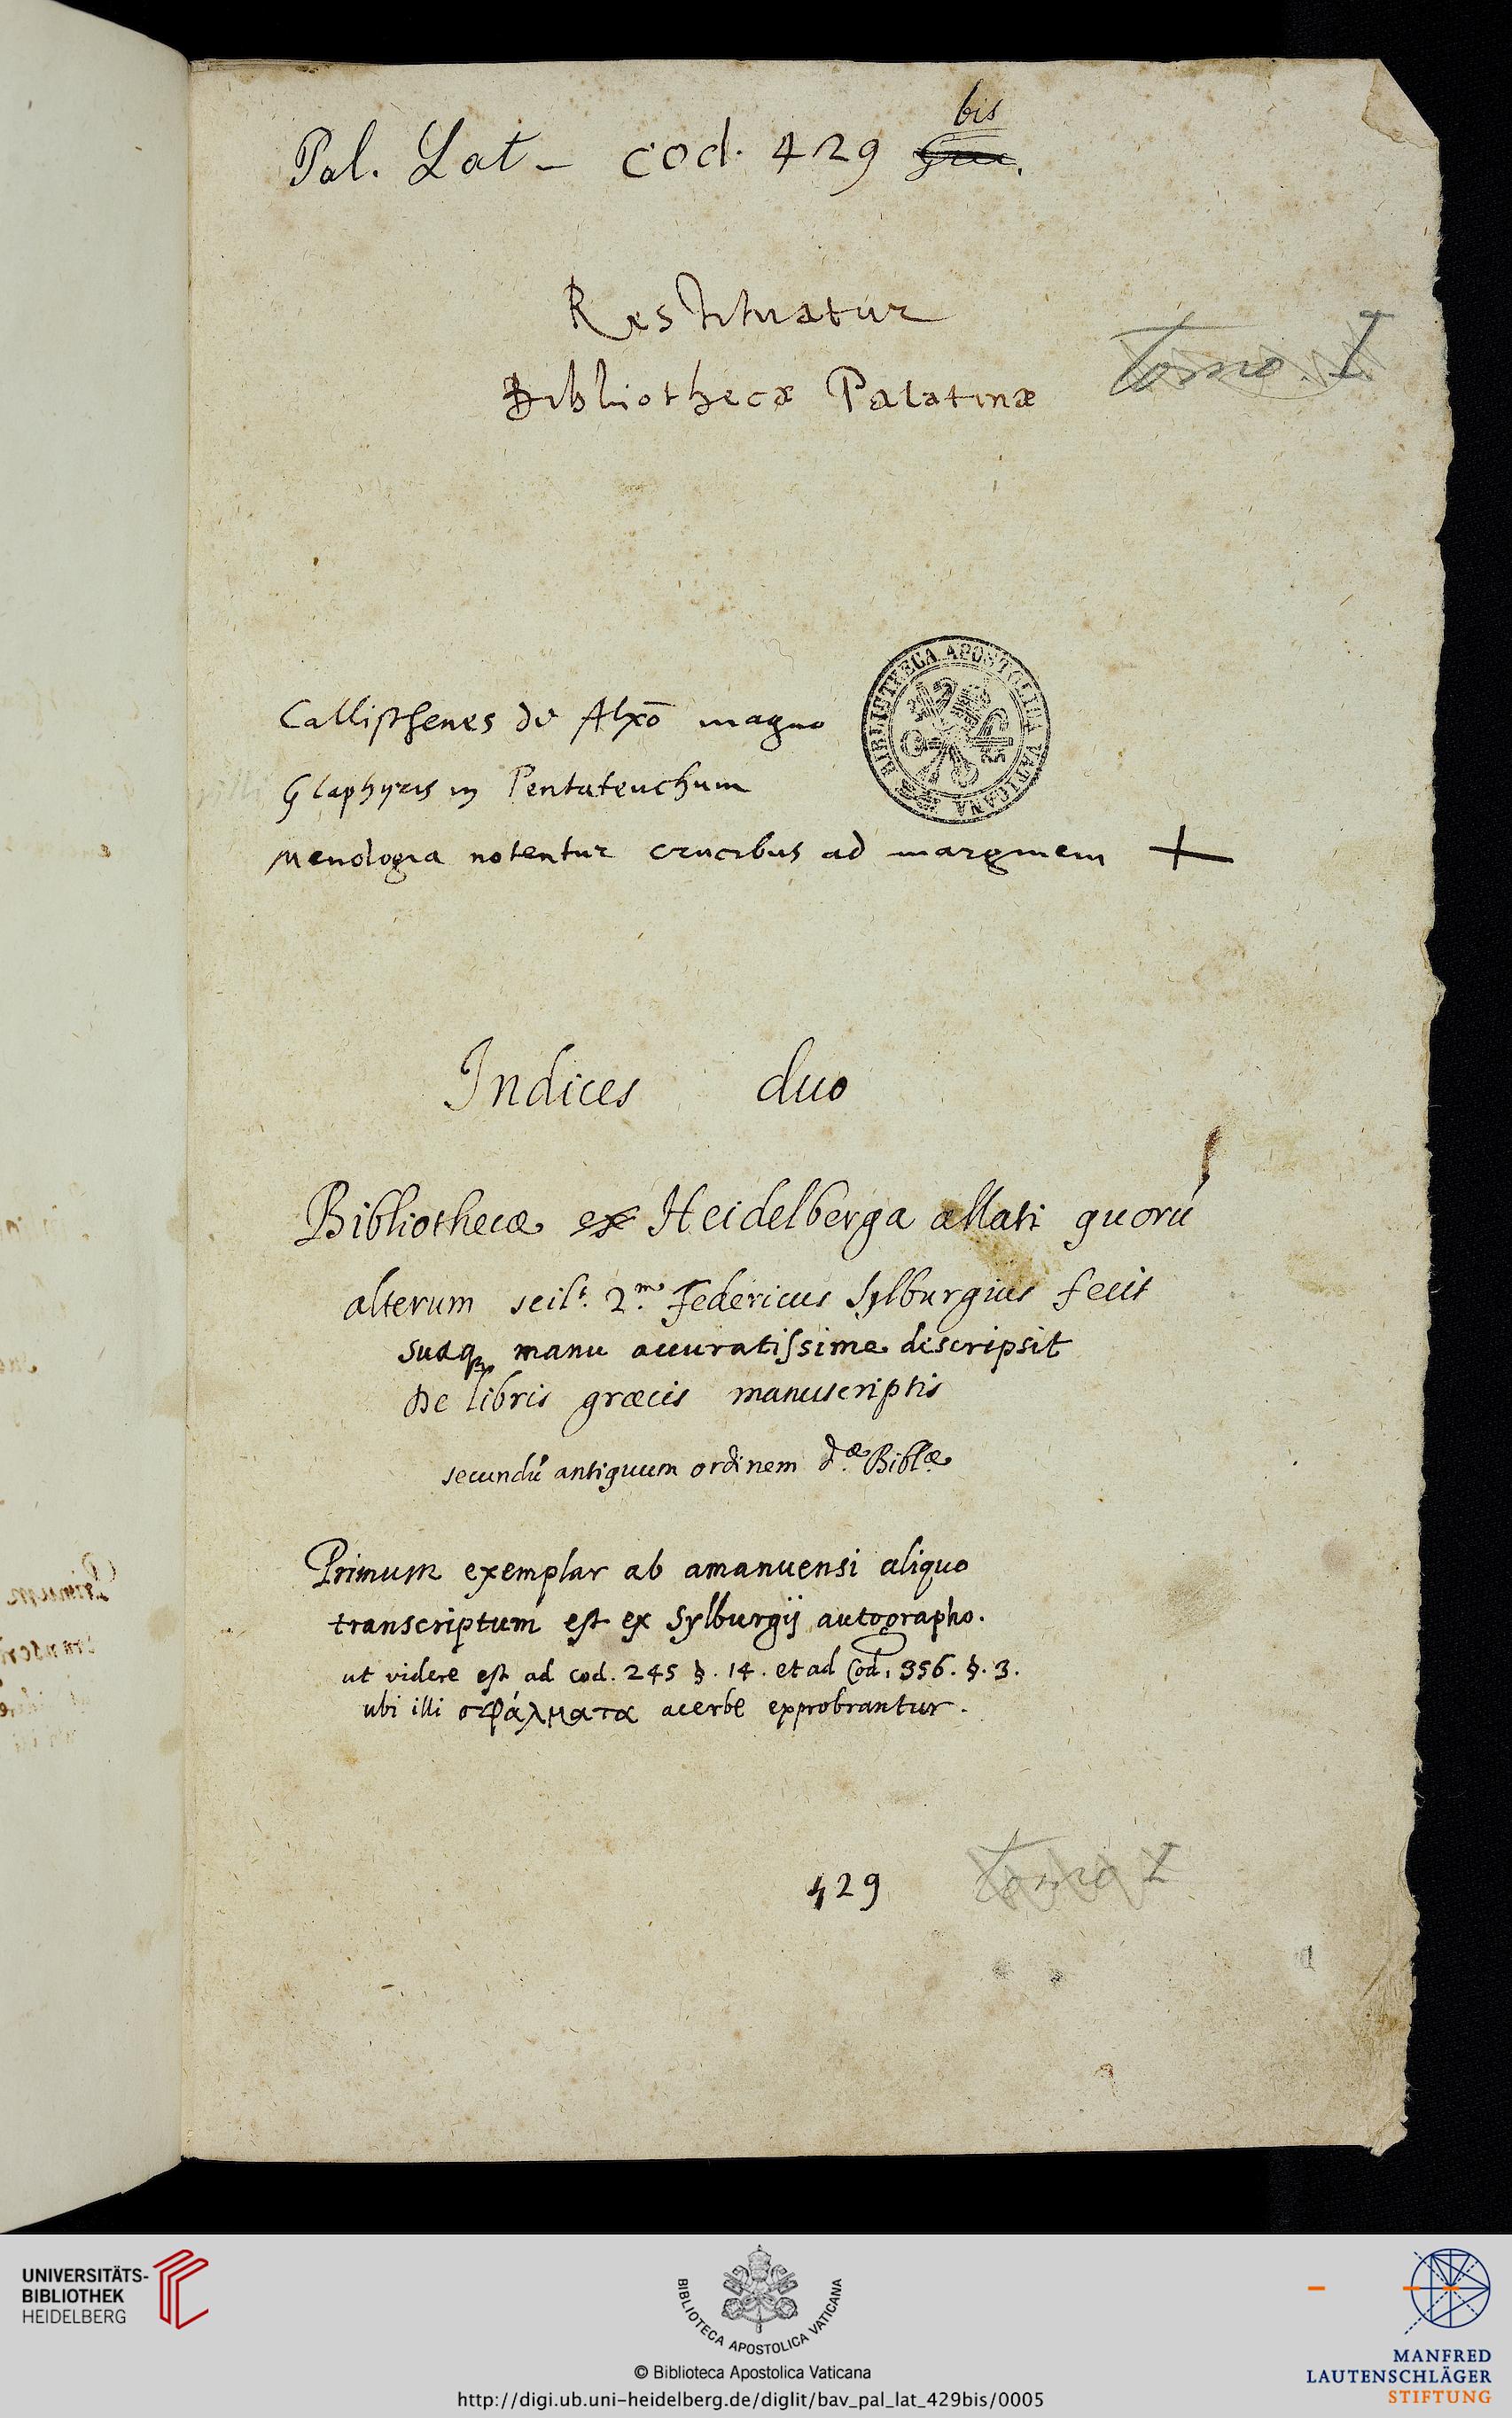 bis
Pal. Lat- cod. 429
Restituatur
Bibliothecæ Palatinæ
Tomo. I
BIBLIOTHECA APOSTOLICA VATICANA
Callisthenes de Alxõ magno
Glaphyris in Pentateuchum
Menologia notentur crucibus ad marginem +
Indices duo
Bibliothecæ ex Heidelberga allati quorũ
alterum scilt. 2.m Federicus Sylburgius fecit
suaq; manu accuratissime descripsit
De libris græcis manuscriptis
secundũ antiquum ordinem d.æ Bibl.æ
Primum exemplar ab amanuensi aliquo
transcriptum est ex Sylburgij autographo.
ut videre est ad cod. 245 §. 14. et ad Cod. 356. §. 3.
ubi illi σφάλματα acerbe exprobrantur.
429 Tomo I
UNIVERSITÄTS-
BIBLIOTHEK
HEIDELBERG
BIBLIOTECA APOSTOLICA VATICANA
© Biblioteca Apostolica Vaticana
http://digi.ub.uni-heidelberg.de/diglit/bav_pal_lat_429bis/0005
MANFRED
LAUTENSCHLÄGER
STIFTUNG